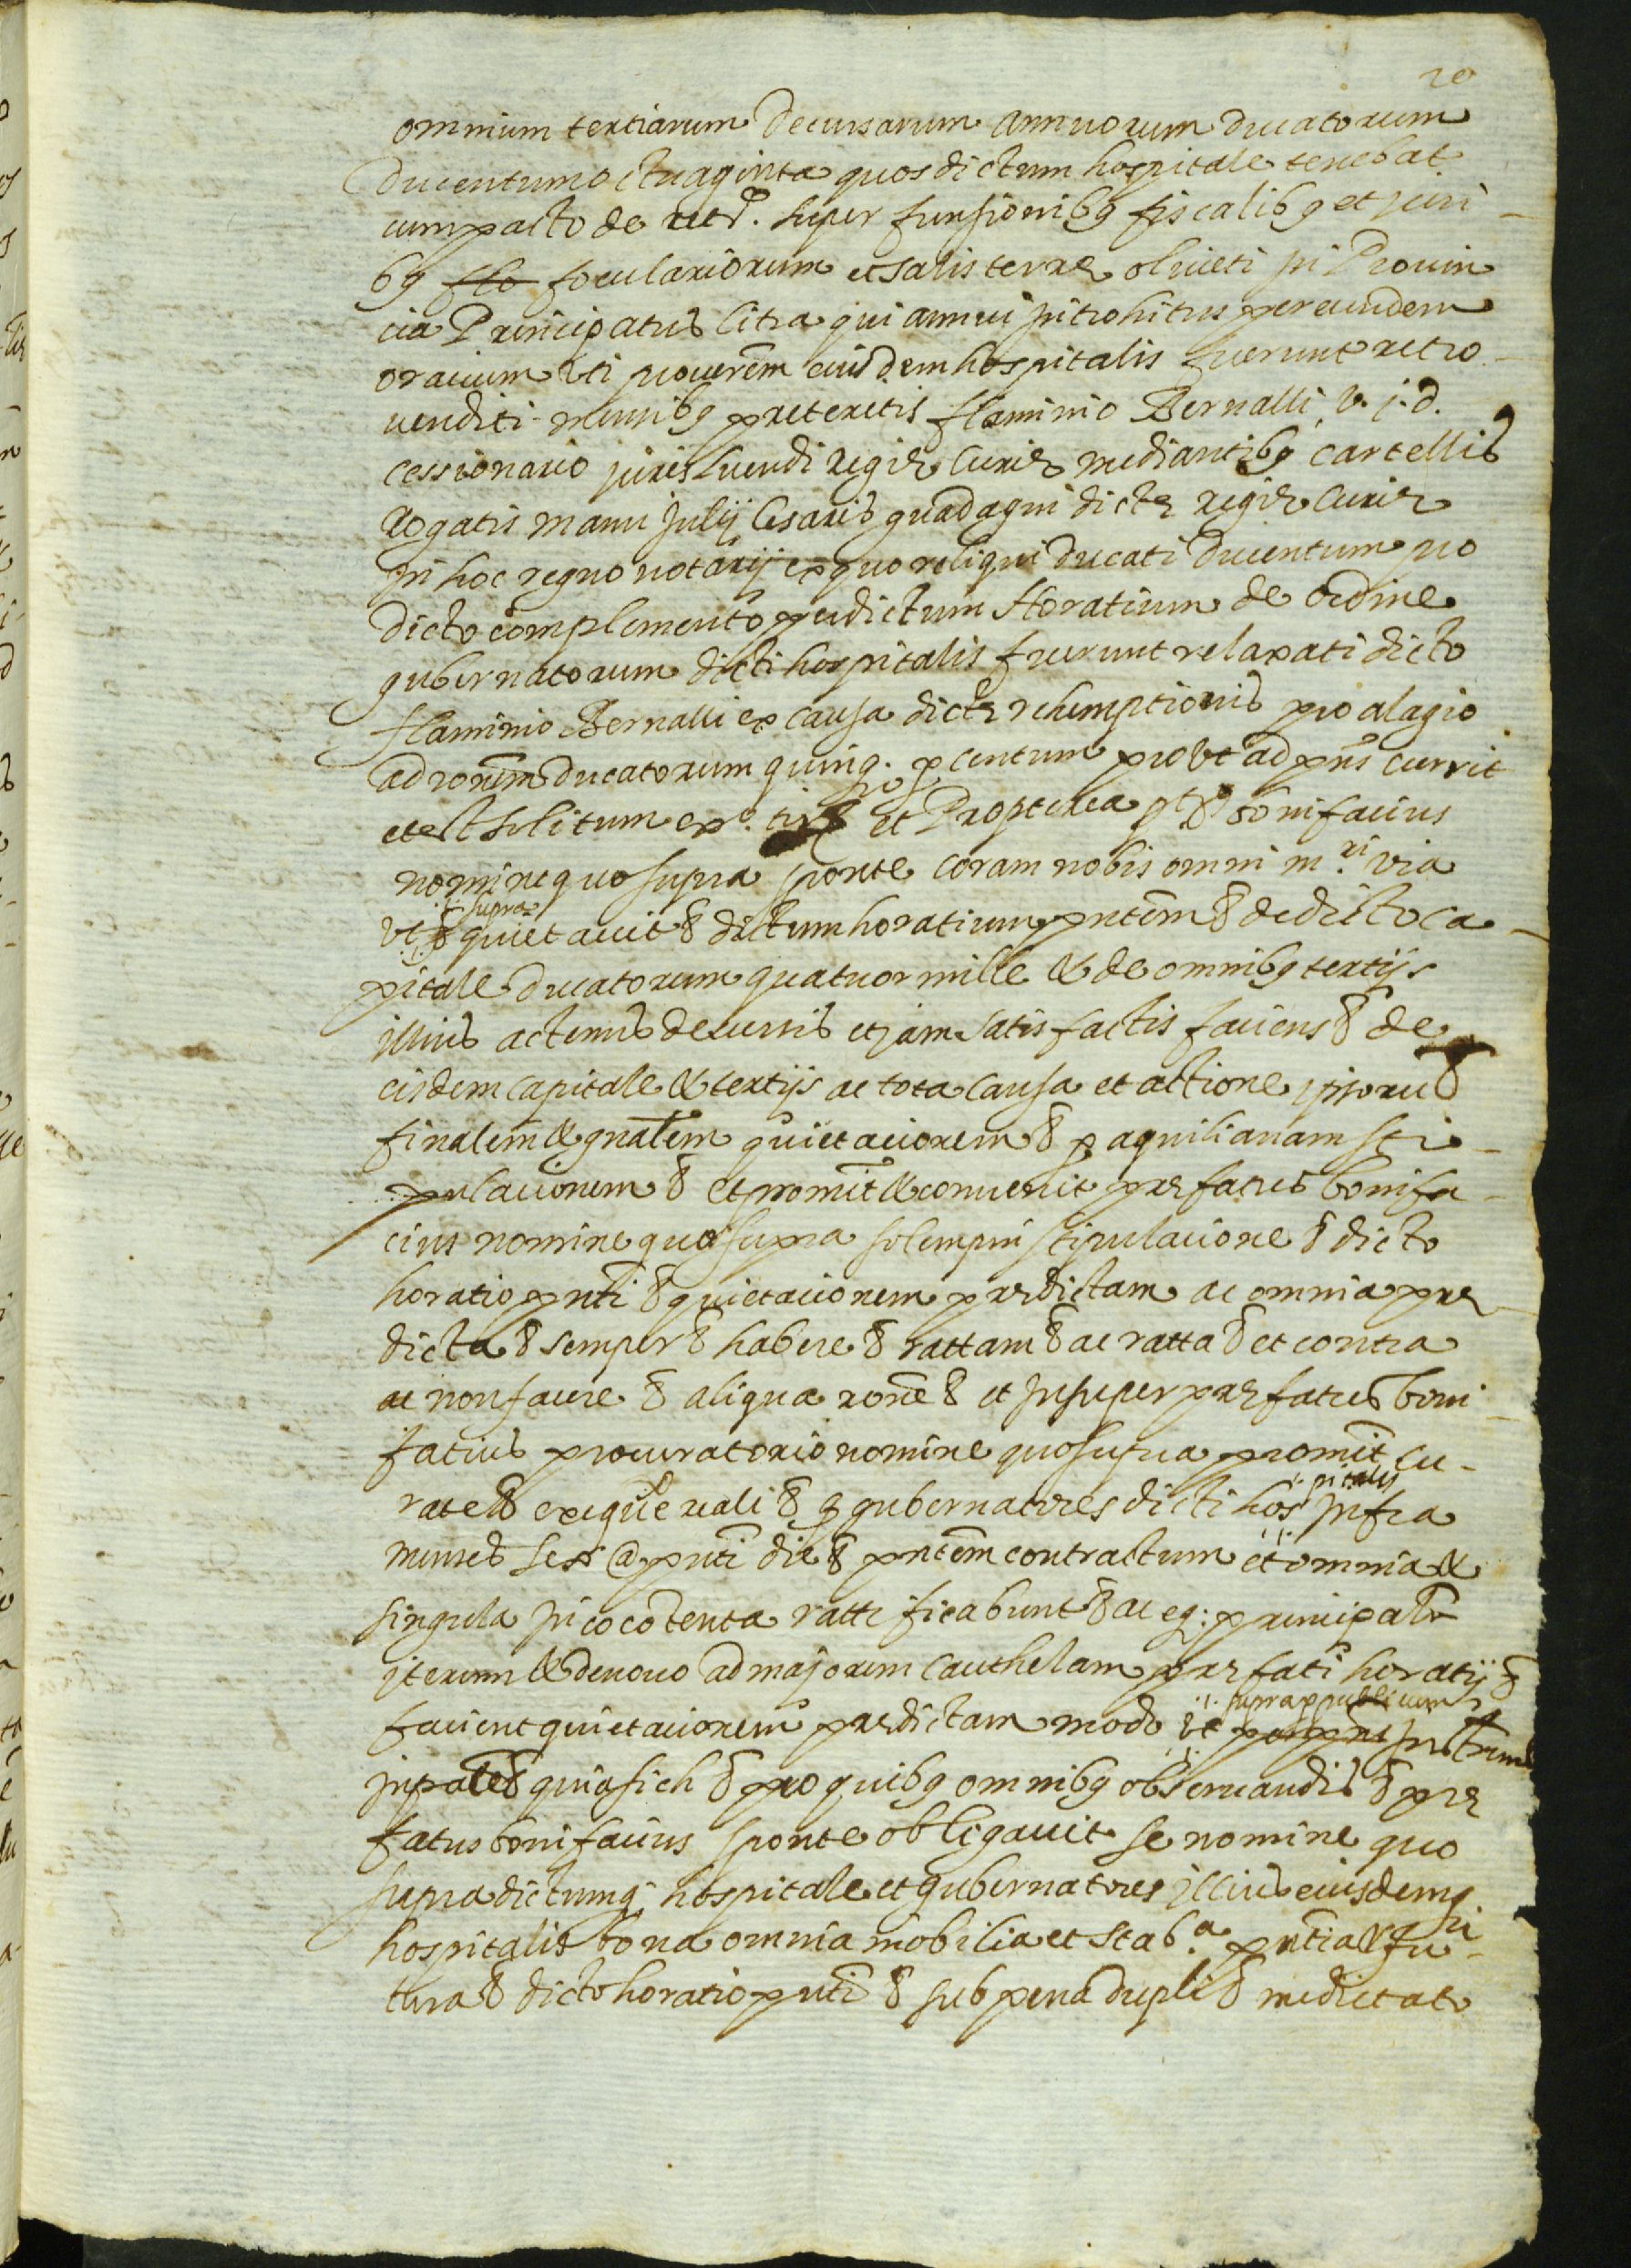 20
omnium tertiarum decursarum annuorum ducatorum
ducentum octuaginta quos dictum hospitale tenebat
cum pacto de retd. super functionibq fiscalibq et juri
bq flo foculariorum et salis terre oliveti in Provin
cia Principatus Citra qui annui introhitus per eundem
oracium uti procurem eiusdem hospitalis fuerunt retro
venditi mensibq preteritis flaminio Bernalli, v. j. d.
cessionario juris luendi regie Curie mediantibq cartellis
rogatis manu Julij Cesaris guadagni dicte regie Curie
in hoc regno notarij ex quo reliqui ducati ducentum pro
dicto complemento per dictum Horatium de ordine
gubernatorum dicti hospitalis fuerunt relaxati dicto
flaminio Bernalli ex causa dicte rehemptionis pro alagio
ad ronem ducatorum quinq. p centum prout ad pns currit
et est solitum et Propterea bonifacius
nomine quo supra sponte coram nobis omni m.ri via
ut supra quietavit & dictum horatium pntem & de dicto ca
pitale ducatorum quatuor mille & de omnibq tertijs
illius actenus decursis et jam satisfactis faciens & de
eisdem capitale & tertijs ac tota causa et actione ipsoru &
finalem & gnalem quietacionem & p aquilianam sti
pulacionem & et promit & convenit prefatus bonifa
cius nomine quo supra solempni stipulacione & dicto
horatio pnti & quietacionem predictam ac omnia pre
dicta & semper & habere & rattam & ac ratta & et contra
ac non facere & aliqua rone & et insuper prefatus boni
facius procuratorio nomine quo supra promit cu
rare & exeque reali & q gubernatores dicti hospitalis infra
menses sex @ pnti die & pntem contractum et omnia &
singula in eo cotenta rattificabunt & ac eq: principalr
iterum & denovo ad majorem cauthelam prefati horatij &
facient quietacionem predictam modo ut supra p publicum instrum
in parte & quia sich & pro quibq omnibq observandis & pre
fatus bonifacius sponte obligavit se nomine quo
supra dictumq hospitale et gubernatores illius eiusdemq
hospitalis bona omnia mobilia et stab.a pntia & fu
tura & dicto horatio pnti & sub pena dupli & medietate